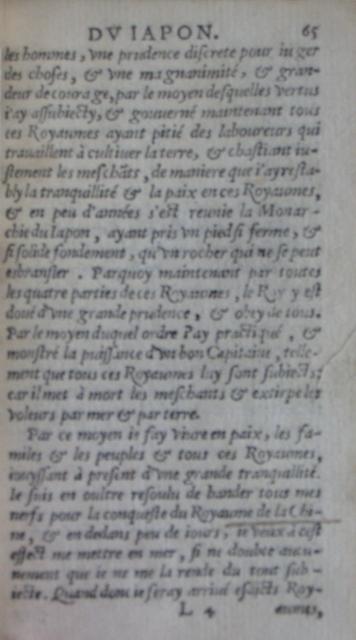 DV IAPON. 65
les hommes, vne prudence discrete pour iuger
des choses, & vne magnanimité, & gran-
deur de courage, par le moyen desquelles vertus
i'ay assubiecty, & gouuerné maintenant tous
ces Royaumes ayant pitié des laboureurs qui
trauaillent à cultiuer la terre, & chastiant iu-
stement les meschãts, de maniere que i'ay resta-
bly la tranquillité & la paix en ces Royaumes,
& en peu d'années s'est reunie la Monar-
chie du Iapon, ayant pris vn pied si ferme, &
si solide fondement, qu'vn rocher qui ne se peut
esbransler. Parquoy maintenant par toutes
les quatre parties de ces Royaumes, le Roy y est
doüé d'vne grande prudence, & obey de tous.
Par le moyen duquel ordre i'ay practiqué, &
monstré la puissance d'vn bon Capitaine, telle-
ment que tous ces Royaumes luy sont subiects:
car il met à mort les meschants & extirpe les
voleurs par mer & par terre.
Par ce moyen ie fay viure en paix, les fa-
miles & les peuples & tous ces Royaumes,
iouyssant à present d'vne grande tranquillité.
Ie suis en oultre resoulu de bander tous mes
nerfs pour la conqueste du Royaume de la Chi-
ne, & en dedans peu de iours, ie veux à cest
effect me mettre en mer, si ne doubte aucu-
nement que ie ne me la rende du tout sub-
iecte. Quand donc ie seray arriué esdicts Roy-
L 4 aumes,